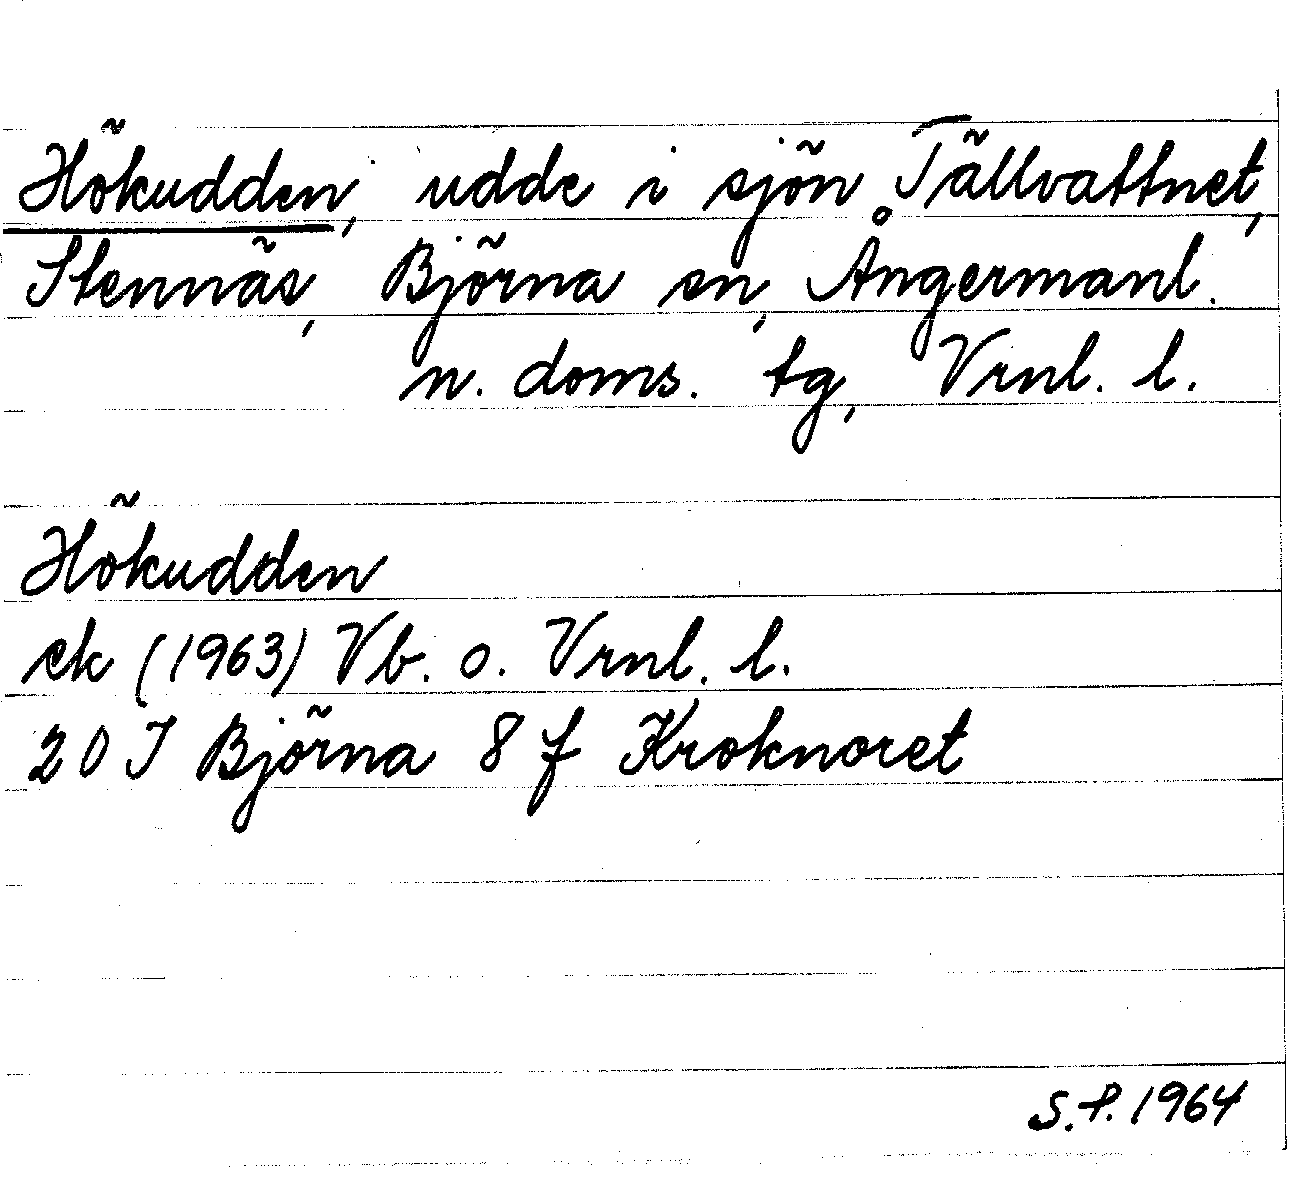 Hökudden, udde i sjön Tällvattnet,
Stennäs, Björna sn, Ångermanl.
n. doms. tg, Vrnl. l.
Hökudden
ek (1963) Vb. o. Vrnl. l.
20 J Björna 8 f Kroknoret
S.P. 1964